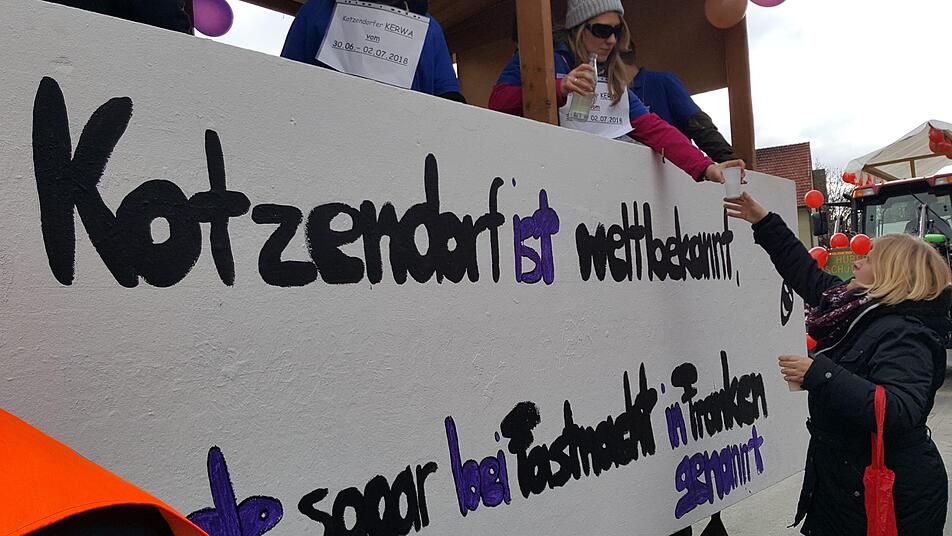 Kotzendorfer KERWA
vom
30.06 - 02.07.2018
KERWA
02.07.2018
Kotzendorf ist weltbekannt,
sogar bei Fastnacht in Franken
genannt